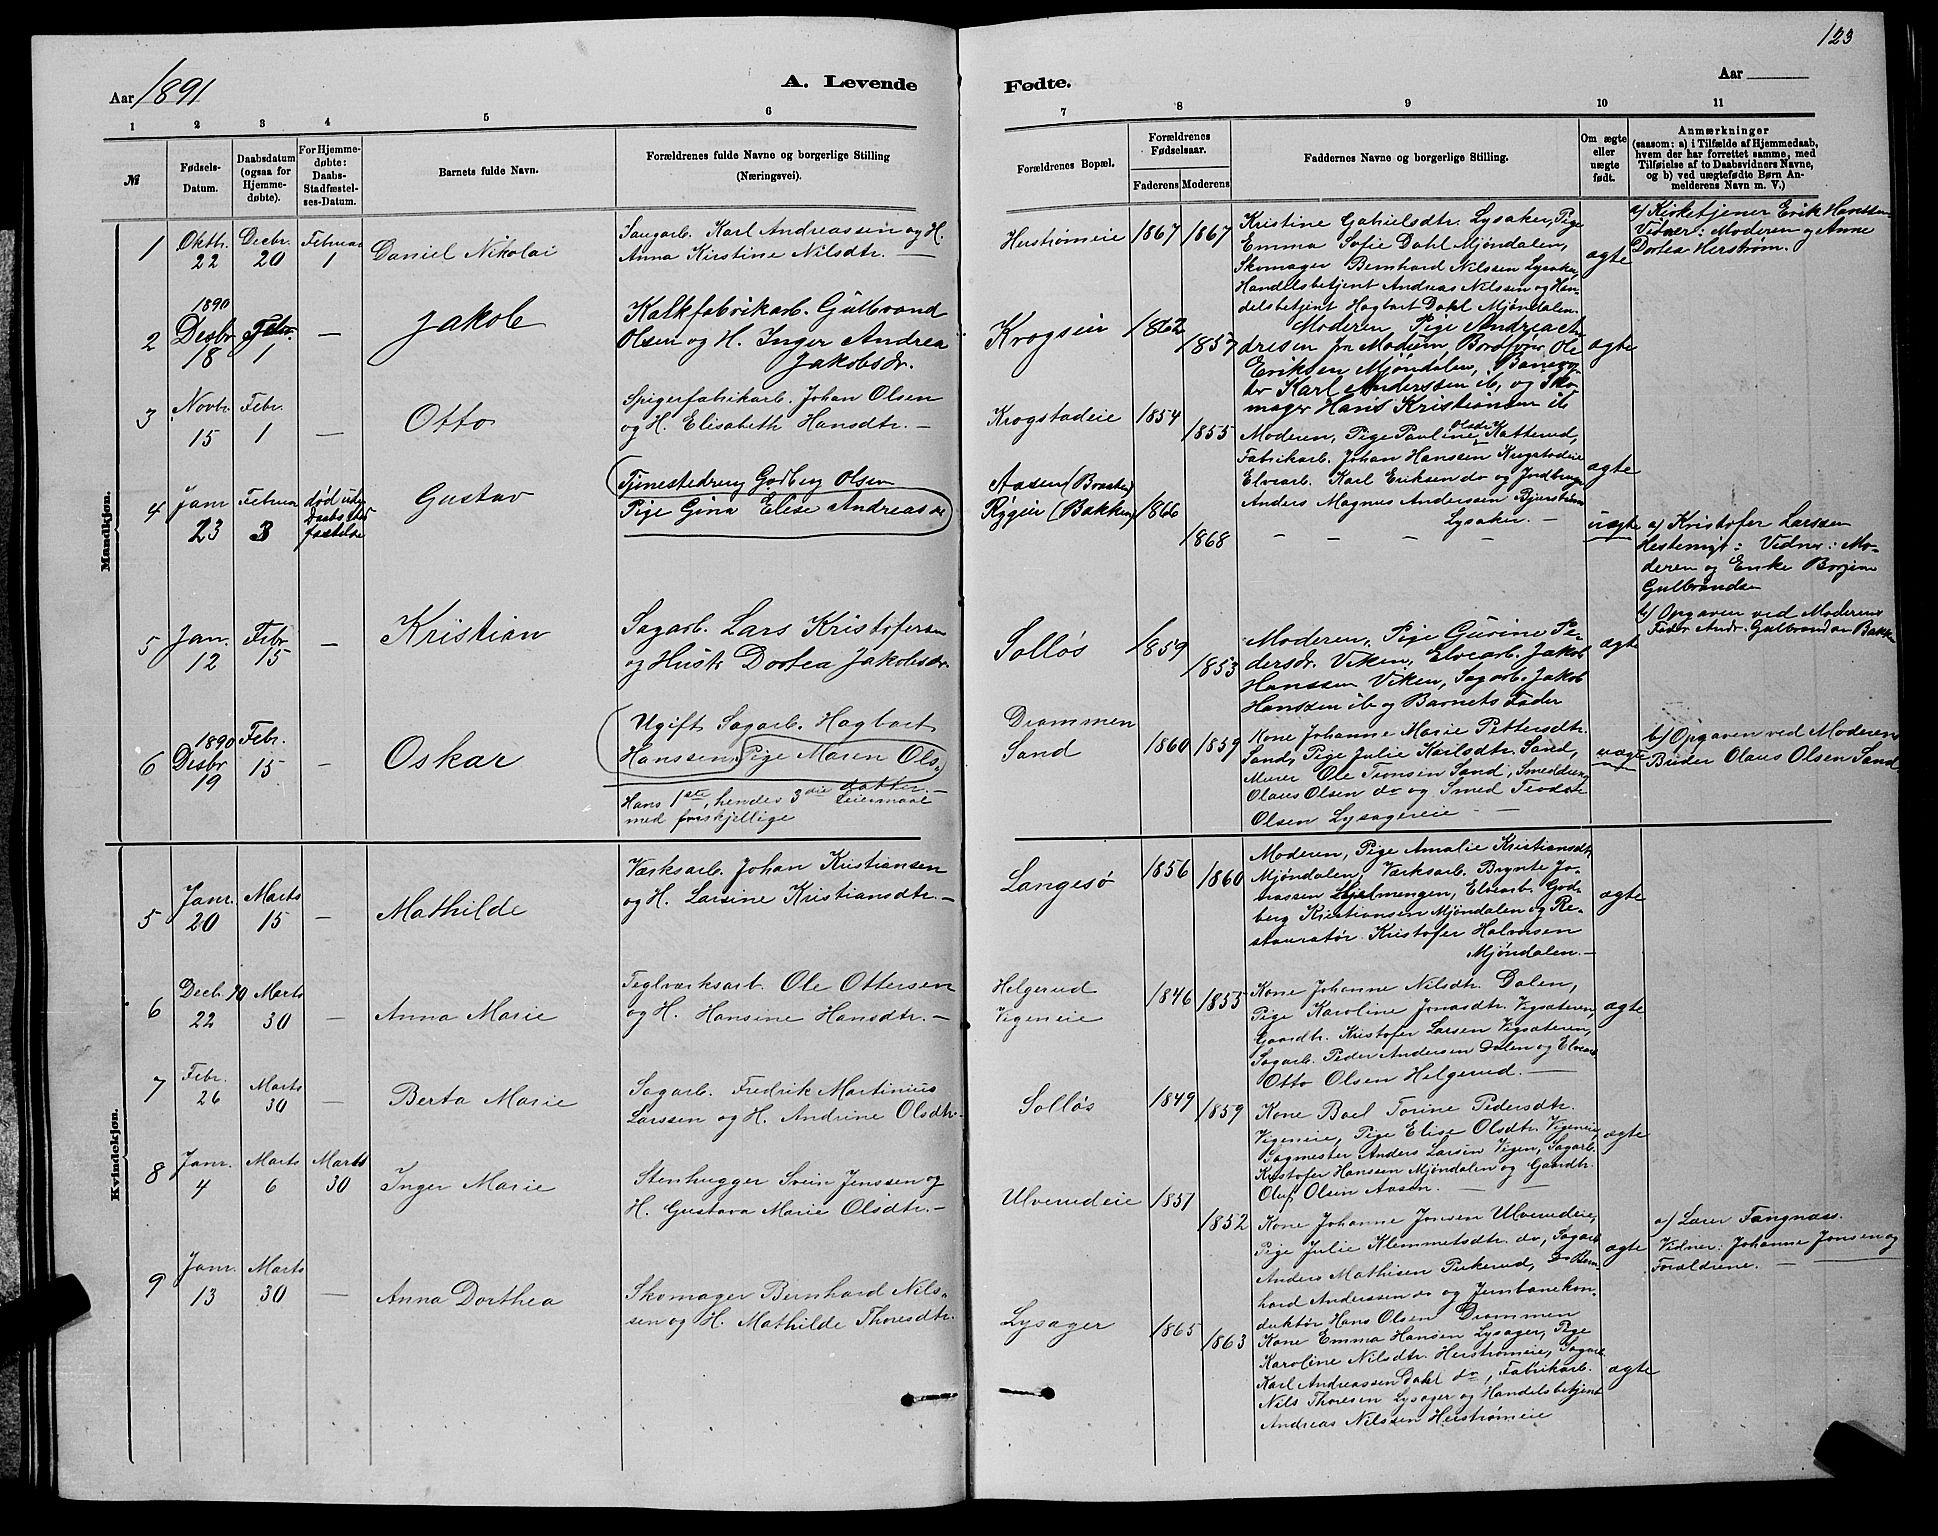 123
Aar 1891
A. Levende
Fødte.
Aar
1 2 3 4 5 6 7 8 9 10 11
№
Fødsels-
Datum.
Daabsdatum
(ogsaa for
Hjemme-
døbte).
For Hjemme-
døbte:
Daabs-
Stadfæstel-
ses-Datum.
Barnets fulde Navn.
Forældrenes fulde Navne og borgerlige Stilling
(Næringsvei).
Forældrenes Bopæl.
Forældrenes
Fødselsaar.
Faderens Moderens
Faddernes Navne og borgerlige Stilling.
Om ægte
eller
uægte
født.
Anmærkninger
(saasom: a) i Tilfælde af Hjemmedaab,
hvem der har forrettet samme, med
Tilføielse af to Daabsvidners Navne,
og b) ved uægtefødte Børn An-
melderens Navn m. V.)
Mandkjøn.
1
Oktb.
22
Decbr.
20
Februar
1
Daniel Nikolai
Saugarb. Karl Andreassen og H.
Anna Kirstine Nilsdtr. —
Herstrømeie
1867
1867
Kristine Gabrielsdtr. Lysaker, Pige
Emma Sofie Dahl Mjøndalen,
Skomager Bernhard Nilssen Lysaker,
Handelsbetjent Andreas Nilssen og Han-
delsbetjent Hagbart Dahl Mjøndalen.
ægte
a) Kirketjener Erik Hanssen
Vidner: Moderen og Anne
Dortea Herstrøm.
2
1890
Desbr
18
Febr.
1
—
Jakob
Kalkfabrikarb. Gulbrand
Olsen og H. Inger Andrea
Jakobsdr.
Krogseie
1862
1857
Moderen, Pige Andrea An-
dresen fra Modum, Bordfører Ole
Eriksen Mjøndalen, Banevog-
ter Karl Anderssen ib, og Sko-
mager Hans Kristiansen ib
ægte
3
Novbr.
15
Febr.
1
—
Otto
Spigerfabrikarb. Johan Olsen
og H. Elisabeth Hansdtr. —
Krogstadeie
1854
1855
Moderen, Pige Pauline Olsdr Katterud,
Fabrikarb. Johan Hanssen Krogstadeie
Elvearb. Karl Eriksen do og
Anders Magnus Anderssen
Lysaker. —
ægte
4
Janr
23
Februar
3
død uden
Daabs Stad
fæstelse
Gustav
Tjenestedreng Godberg Olsen
Pige Gina Elise Andreasdr
Aasen (Braaten)
Ryggeie (Bakken)
1866
1868
— — — — —
uægte
a) Kristofer Larssen
Hestenigt: Vidner: Mo-
deren og Enke
Gulbrandsen
b) Opgaven ved Moderens
Fader Andr. Gulbrandsen Bakken
5
Jan.
12
Febr
15
—
Kristian
Sagarb. Lars Kristofersen
og Hustr Dortea Jakobsdr.
Solløs
1859
1853
Moderen, Pige Gurine Pe-
dersdr. Viken, Elvearb. Jakob
Hanssen Viken, Sagarb. Jakob
Hanssen ib og Barnets Fader
ægte
6
1890
Desbr
19
Febr.
15
—
Oskar
Ugift Sagarb. Hagbart
Hanssen, Pige Maren Ols-
datter. —
Hans 1ste, hendes 3die Leiermaal
med forskjellige
Drammen
Sand
1860
1859
Kone Johanne Marie Pettersdtr.
Sand, Pige Julie Karlsdtr. Sand,
Murer Ole Tomsen Sand, Smeddreng
Olaus Olsen do og Smed Teodor
Olsen Lysagereie —
uægte
b) Opgaven ved Moderens
Broder Olaus Olsen Sand
Kvindekjøn.
5
Janr.
20
Marts
15
—
Mathilde
Værksarb. Johan Kristiansen
og H. Larsine Kristiansdtr. —
Langesø
1856
1860
Moderen, Pige Amalie Kristiansdtr
Mjøndalen, Værksarb. Brynte Jo-
nassen Stjelmengen, Elvearb. God-
berg Kristiansen Mjøndalen og Re-
stauratør Kristofer Halvorsen
Mjøndalen. —
ægte
6
Decb. 90
22
Marts
30
—
Anna Marie
Teglværksarb. Ole Ottersen
og H. Hansine Hansdtr. —
Helgerud
Vigeneie
1846
1855
Kone Johanne Nilsdtr. Dalen,
Pige Karoline Jonasdtr. Vigsæteren,
Gaardtr. Kristofer Larsen Vigsæteren,
Sagarb. Peder Andersen Dalen og Elvearb
Otto Olsen Helgerud. —
ægte
7
Febr.
26
Marts
30
—
Berta Marie
Sagarb. Fredrik Martinius
Larssen og H. Andrine Olsdtr.
Solløs
1849
1859
Kone Boel Torine Pedersdtr.
Vigeneie, Pige Elise Olsdtr. Vigeneie,
Sagmester Anders Larsen Vigen, Sagarb.
Kristofer Hanssen Mjøndalen og Gaardtr.
Oluf Olsen Aasen. —
ægte
8
Janr.
4
Marts
6
Marts
30
Inger Marie
Stenhugger Svein Jenssen og
H. Gustava Marie Olsdtr. —
Ulverudeie
1851
1852
Kone Johanne Jonsen Ulverudeie,
Pige Julie Klemmetsdtr. do, Sagarb
Anders Mathisen Pukerud, Do Bern-
hard Anderssen do og Jernbanekon-
duktør Hans Olsen Drammen
ægte
a) Lærer Tangnæss.
Vidner: Johanne Jonsen og
Forældrene. —
9
Janr.
13
Marts
30
—
Anna Dorthea
Skomager Bernhard Nils-
sen og H. Mathilde Thoresdtr.
Lysager
1865
1863
Kone Emma Hansen Lysager, Pige
Karoline Nilsdtr. Herstrømeie, Sagarb.
Karl Andreassen Dahl do, Fabrikarb.
Nils Thoresen Lysager og Handelsbetjent
Andreas Nilssen Herstrømeie
ægte